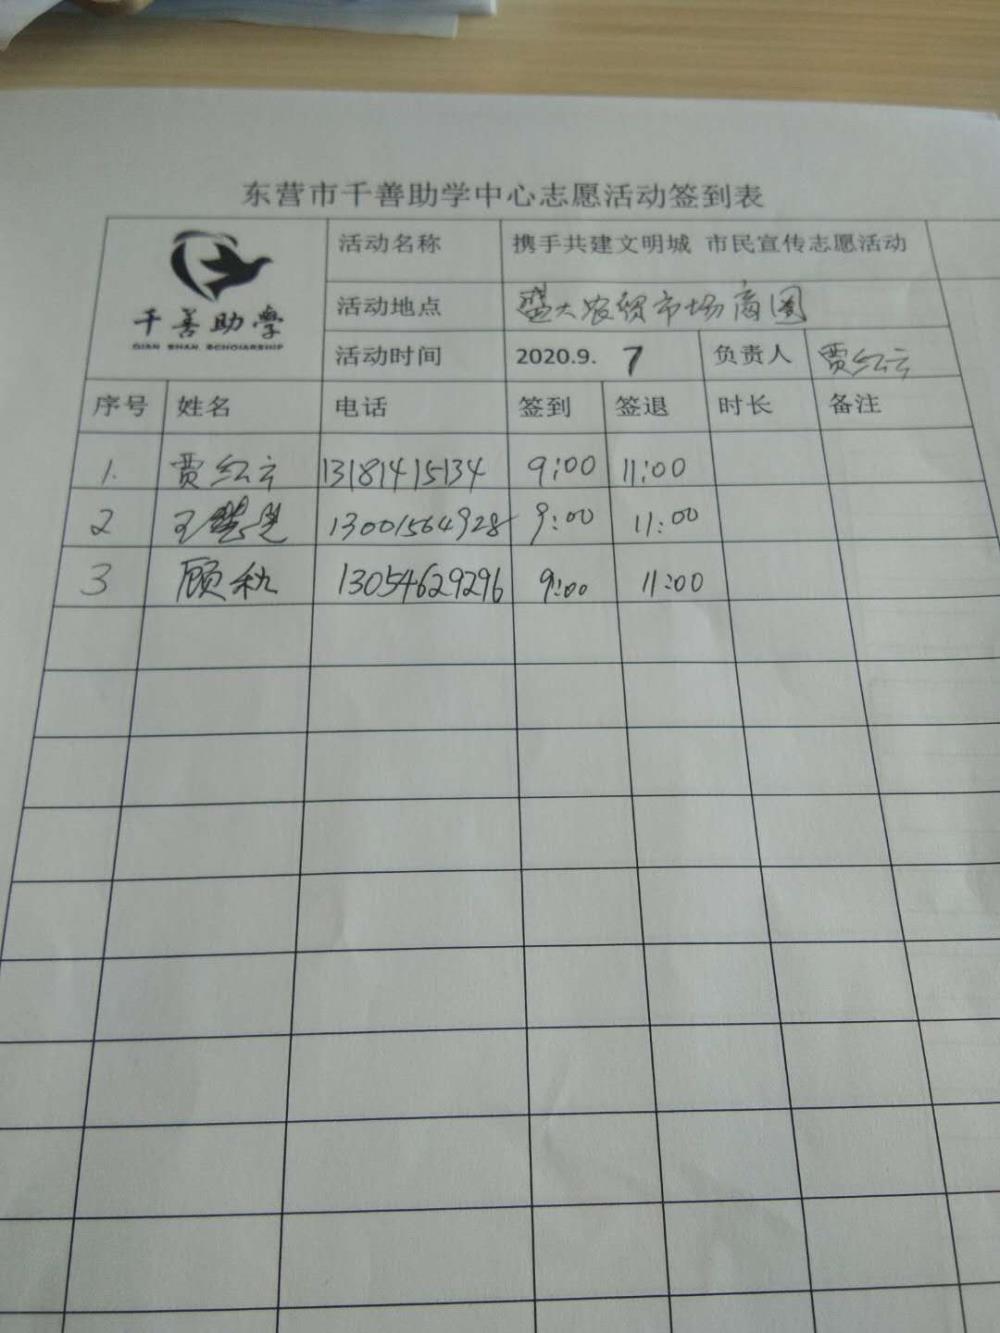 东营市千善助学中心志愿活动签到表
千善助學
QIAN SHAN SCHOLARSHIP
活动名称 携手共建文明城 市民宣传志愿活动
活动地点 盛大农贸市场商圈
活动时间 2020.9. 7 负责人 贾红云
序号 姓名 电话 签到 签退 时长 备注
1. 贾红云 13181415134 9:00 11:00
2 王 13001564928 9:00 11:00
3 顾秋 13054629296 9:00 11:00